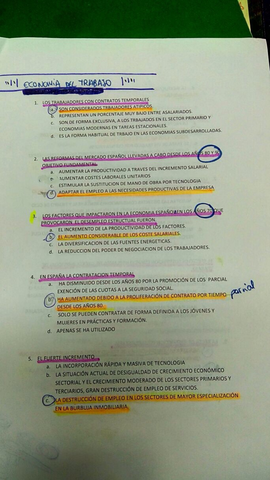 ECONOMIA DEL TRABAJO
1. LOS TRABAJADORES CON CONTRATOS TEMPORALES
a. SON CONSIDERADOS TRBAJADORES ATIPICOS
b. REPRESENTAN UN PORCENTAJE MUY BAJO ENTRE ASALARIADOS.
c. SON DE FORMA EXCLUSIVA, A LOS TRBAJADOS EN EL SECTOR PRIMARIO Y
ECONOMIAS MODERNAS EN TAREAS ESTACIONALES.
d. ES LA FORMA HABITUAL DE TRBAJO EN LAS ECONOMIAS SUBDESARROLLADAS.
2. LAS REFORMAS DEL MERCADO ESPAÑOL LLEVADAS A CABO DESDE LOS AÑOS 80 Y
OBJETIVO FUNDAMENTAL
a. AUMENTAR LA PRODUCTIVIDAD A TRAVES DEL INCREMENTO SALARIAL
b. AUMENTAR COSTES LABORALES UNITARIOS
c. ESTIMULAR LA SUSTITUCION DE MANO DE OBRA POR TECNOLOGIA
d. ADAPTAR EL EMPLEO A LAS NECESIDADES PRODUCTIVAS DE LA EMPRESA
3. LOS FACTORES QUE IMPACTARON EN LA ECONOMIA ESPAÑOLA EN LOS AÑOS QUE
PROVOCARON EL DESEMPLEO ESTRUCTURAL FUERON
a. EL INCREMENTO DE LA PRODUCTIVIDAD DE LOS FACTORES.
b. EL AUMENTO CONSIDERABLE DE LOS COSTE SALARIALES.
c. LA DIVERSIFICACION DE LAS FUENTES ENERGETICAS.
d. LA REDUCCION DEL PODER DE NEGOCIACION DE LOS TRABAJADORES.
4. EN ESPAÑA LA CONTRATACION TEMPORAL
a. HA DISMINUIDO DESDE LOS AÑOS 80 POR LA IMPOSICIÓN DE LOS PARCIAL
EXENCIÓN DE LAS CUOTAS A LA SEGURIDAD SOCIAL.
b. HA AUMENTADO DEBIDO A LA PROLIFERACIÓN DE CONTRATO POR TIEMPO parcial
DESDE LOS AÑOS 80.
c. SOLO SE PUEDEN CONTRATAR DE FORMA DEFINITIVA A LOS JÓVENES Y
MUJERES EN PRÁCTICAS Y FORMACIÓN.
d. APENAS SE HA UTILIZADO
5. EL FUERTE INCREMENTO
a. LA INCORPORACIÓN RÁPIDA Y MASIVA DE TECNOLOGIA
b. LA SITUACIÓN ACTUAL DE DESIGUALDAD DE CRECIMIENTO ECONÓMICO
SECTORIAL Y EL CRECIMIENTO MODERADO DE LOS SECTORES PRIMARIOS Y
TERCIARIOS, GRAN DESTRUCCIÓN DE EMPLEO DE SERVICIOS.
c. LA DESTRUCCIÓN DE EMPLEO EN LOS SECTORES DE MAYOR ESPECIALIZACIÓN
EN LA BURBUJA INMOBILIARIA.